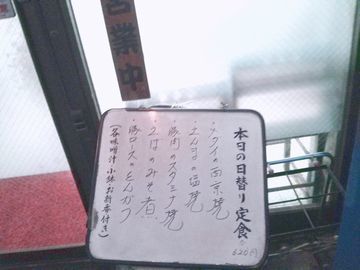 営業中
本日の日替り定食
620円
・メダイの西京焼
・さんまの塩焼
・豚肉のスタミナ焼
・さばのみそ煮
・豚ロースのとんかつ
(各味噌汁 小鉢 お新香付き)